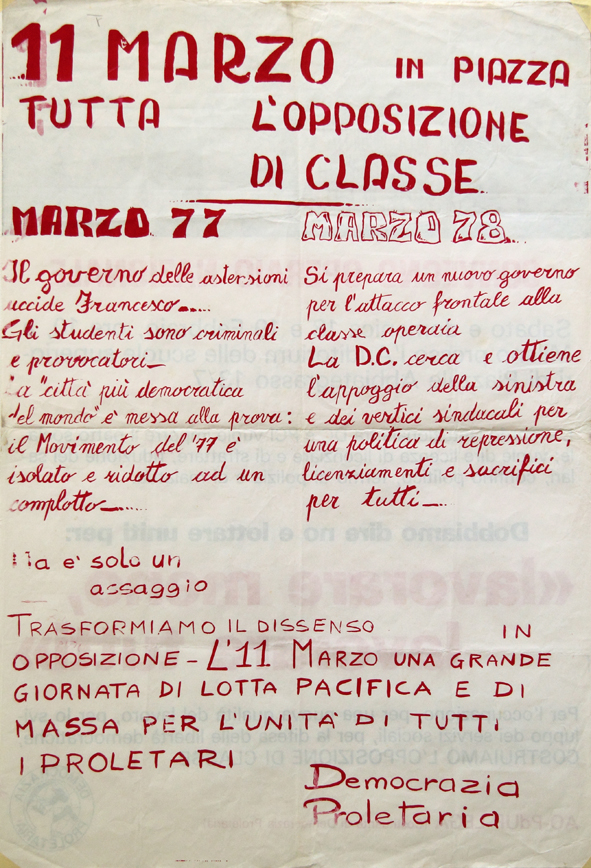 11 MARZO IN PIAZZA
TUTTA L'OPPOSIZIONE
DI CLASSE
MARZO 77
Il governo delle astensioni
uccide Francesco.....
Gli studenti sono criminali
e provocatori_
La "città più democratica
del mondo" e' messa alla prova:
il Movimento del '77 e'
isolato e ridotto ad un
complotto_.....
MARZO 78
Si prepara un nuovo governo
per l'attacco frontale alla
classe operaia
La D.C. cerca e ottiene
l'appoggio della sinistra
e dei vertici sindacali per
una politica di repressione,
licenziamenti e sacrifici
per tutti_...
Ma e' solo un
assaggio
TRASFORMIAMO IL DISSENSO IN
OPPOSIZIONE - L'11 MARZO UNA GRANDE
GIORNATA DI LOTTA PACIFICA E DI
MASSA PER L'UNITA' DI TUTTI
I PROLETARI
Democrazia
Proletaria